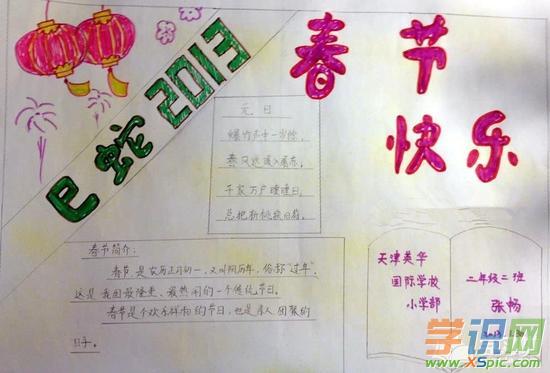 春节
快乐
巳蛇2013
元日
爆竹声中一岁除,
春风送暖入屠苏。
千家万户曈曈日,
总把新桃换旧符。
春节简介:
春节是农历正月初一,又叫阴历年,俗称"过年"。
这是我国最隆重、最热闹的一个传统节日。
春节是个欢乐祥和的节日,也是亲人团聚的
日子。
天津英华
国际学校
小学部
二年级二班
张畅
学识网
www.XSpic.com